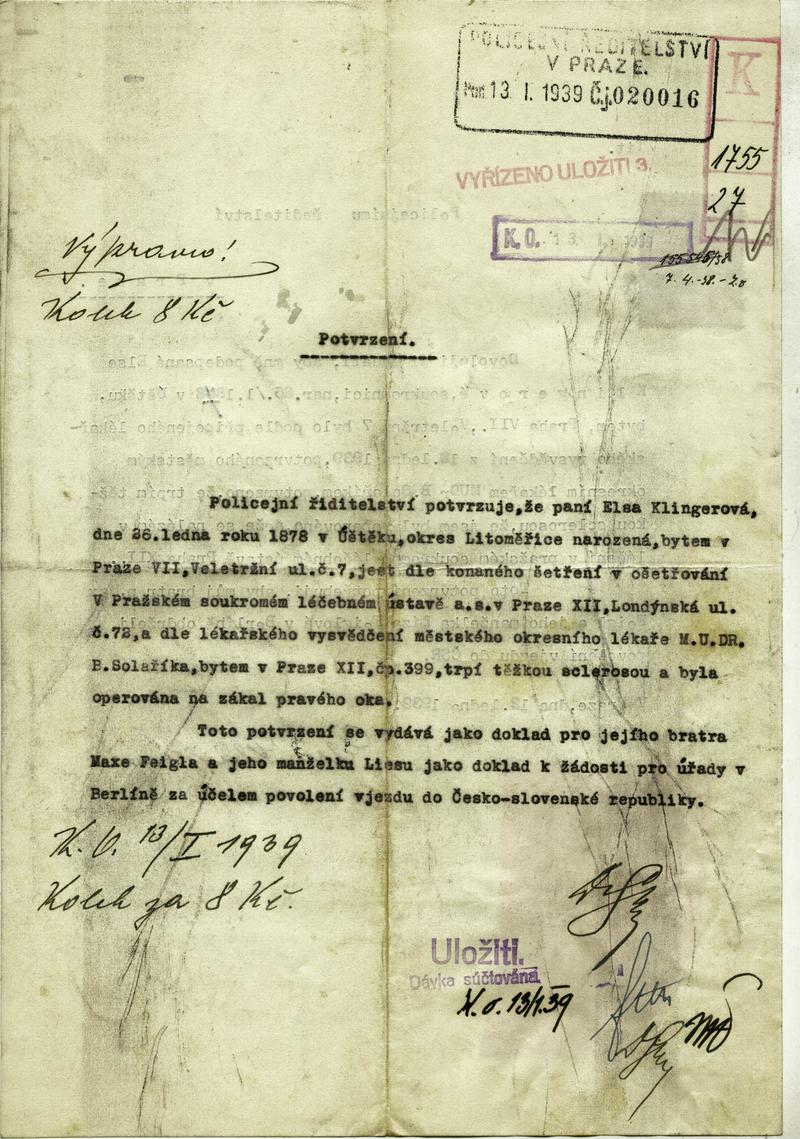 POLICEJNÍ ŘEDITELSTVÍ
V PRAZE.
13. I. 1939 Čj. 020016
K
1755
VYŘÍZENO ULOŽITI 3.
27
K. O. 13. I. 1939
7. 4.-38.-
Výpravno!
Kolek 8 Kč
Potvrzení.
Policejní řiditelství potvrzuje,že paní Elsa Klingerová,
dne 26.ledna roku 1878 v Úštěku,okres Litoměřice narozená,bytem v
Praze VII,Veletržní ul.č.7,jest dle konaného šetření v ošetřování
V Pražském soukromém léčebném ústavě a.s.v Praze XII,Londýnská ul.
č.72,a dle lékařského vysvědčení městského okresního lékaře M.U.DR.
B.Solaříka,bytem v Praze XII,čp.399,trpí těžkou sclerosou a byla
operována na zákal pravého oka.
Toto potvrzení se vydává jako doklad pro jejího bratra
Maxe Feigla a jeho manželku Liesu jako doklad k žádosti pro úřady v
Berlíně za účelem povolení vjezdu do Česko-slovenské republiky.
K. O. 13/I 1939
Kolek za 8 Kč.
Uložiti.
Dávka súčtována
K. o. 13/1.39